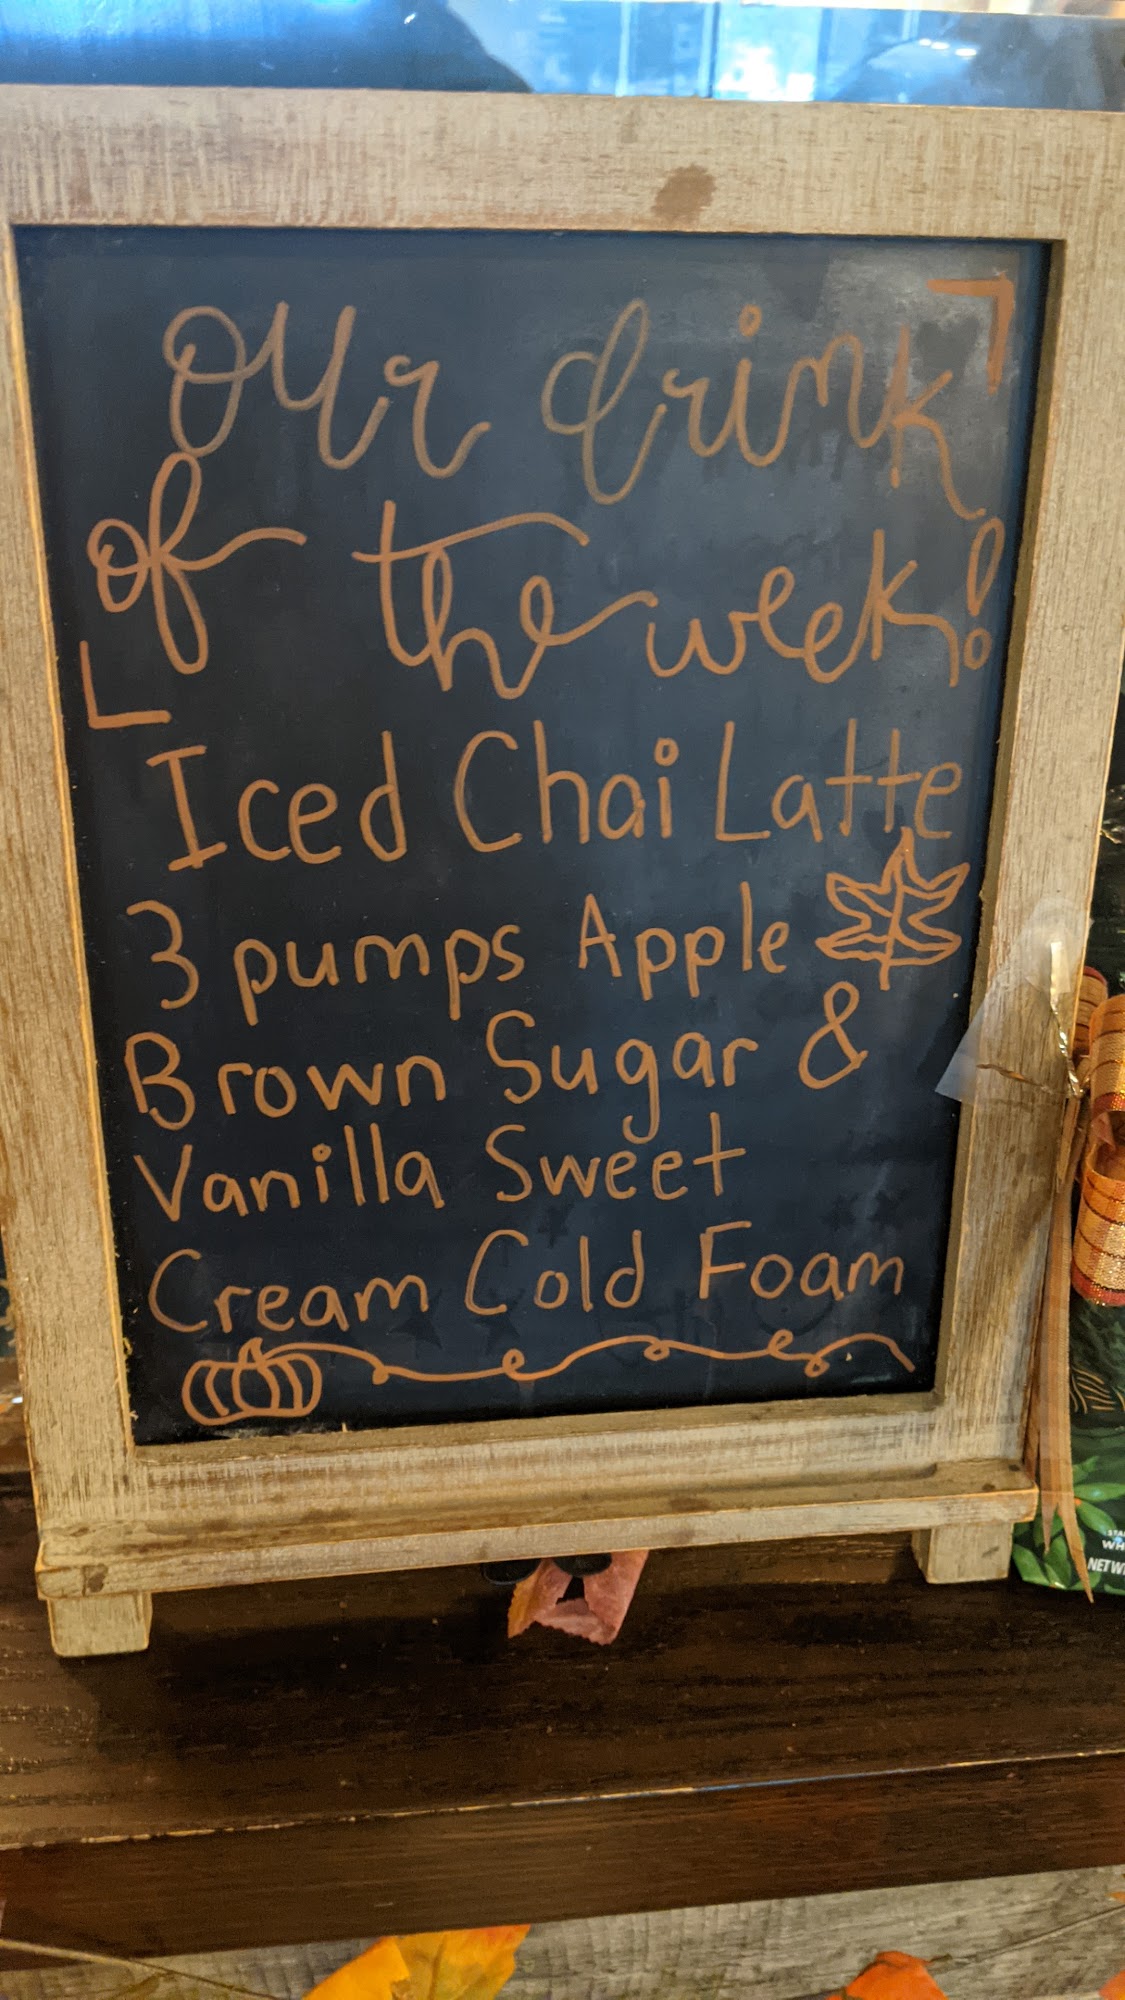 Our drink
of the week!
Iced Chai Latte
3 pumps Apple
Brown Sugar &
Vanilla Sweet
Cream Cold Foam